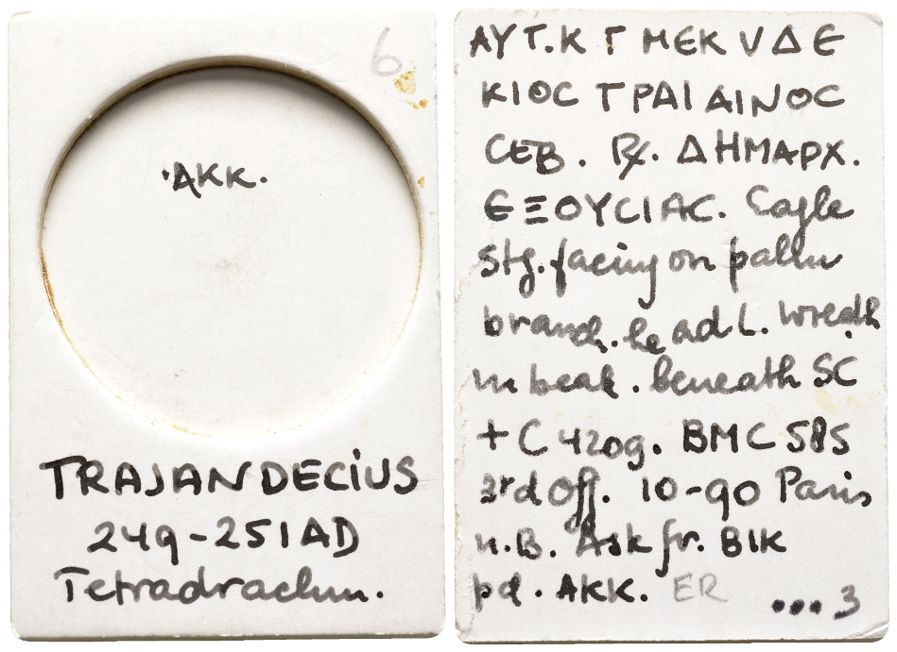 6
·AKK.
TRAJAN DECIUS
249-251 AD
Tetradrachm.
ΑΥΤ.Κ Γ ΜΕΚ V ΔΕ
ΚΙΟC ΤΡΑΙΑΙΝΟC
CEB. R. ΔΗΜΑΡΧ.
ΕΞΟΥCΙΑC. Eagle
stg. facing on palm
branch. head L. wreath
in beak. beneath SC
+ C 420g. BMC 585
3rd Off. 10-90 Paris
n.B. Ask fr. BIK
pd. AKK. ER ...3